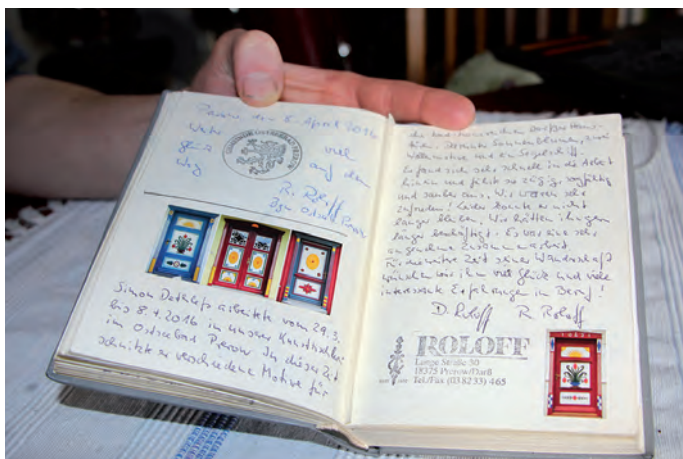 Prerow den 8. April 2016
viel
Glück auf dem
Weg
R. Roloff
Bgm Ostseebad Prerow
Simon Dethlefs arbeitete vom 29.3.
bis 8.4.2016 in unserer Kunsttischlerei
im Ostseebad Prerow. In dieser Zeit
schnitzte er verschiedene Motive für
die Darßer Haus-
türen. Sonnenblumen, zwei
und ein Segelschiff.
Er fand sich sehr schnell in die Arbeit
hinein und führte sie zügig, sorgfältig
und sauber aus. Wir waren sehr
zufrieden! Leider konnte er nicht
länger bleiben, wir hätten ihn gern
länger beschäftigt. Es war eine sehr
angenehme Zusammenarbeit.
Für die weitere Zeit seiner Wanderschaft
wünschen wir ihm viel Glück und viele
interessante Erfahrungen im Beruf!
D. Roloff R. Roloff
ROLOFF
Lange Straße 30
18375 Prerow/Darß
Tel./Fax (03 82 33) 465